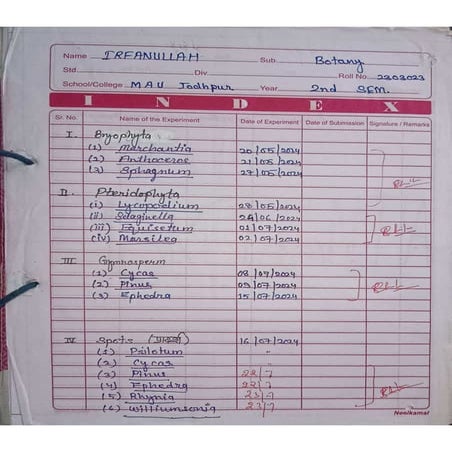 Name IRFANULLAH Sub. Botany
Std. Div. Roll No. 2203023
School/College MAU Jodhpur Year 2nd SEM.
INDEX
Sr. No. Name of the Experiment Date of Experiment Date of Submission Signature / Remarks
I. Bryophyta
(1) Marchantia 20/05/2024
(2) Anthoceros 21/05/2024
(3) Sphagnum 27/05/2024
II. Pteridophyta
(i) Lycopodium 28/05/2024
(ii) Selaginella 24/06/2024
(iii) Equisetum 01/07/2024
(iv) Marsilea 02/07/2024
III. Gymnosperm
(1) Cycas 08/07/2024
(2) Pinus 09/07/2024
(3) Ephedra 15/07/2024
IV Spots 16/07/2024
(1) Psilotum "
(2) Cycas "
(3) Pinus 22/7
(4) Ephedra 22/7
(5) Rhynia 23/7
(6) Williumsonia 23/7
Neelkamal